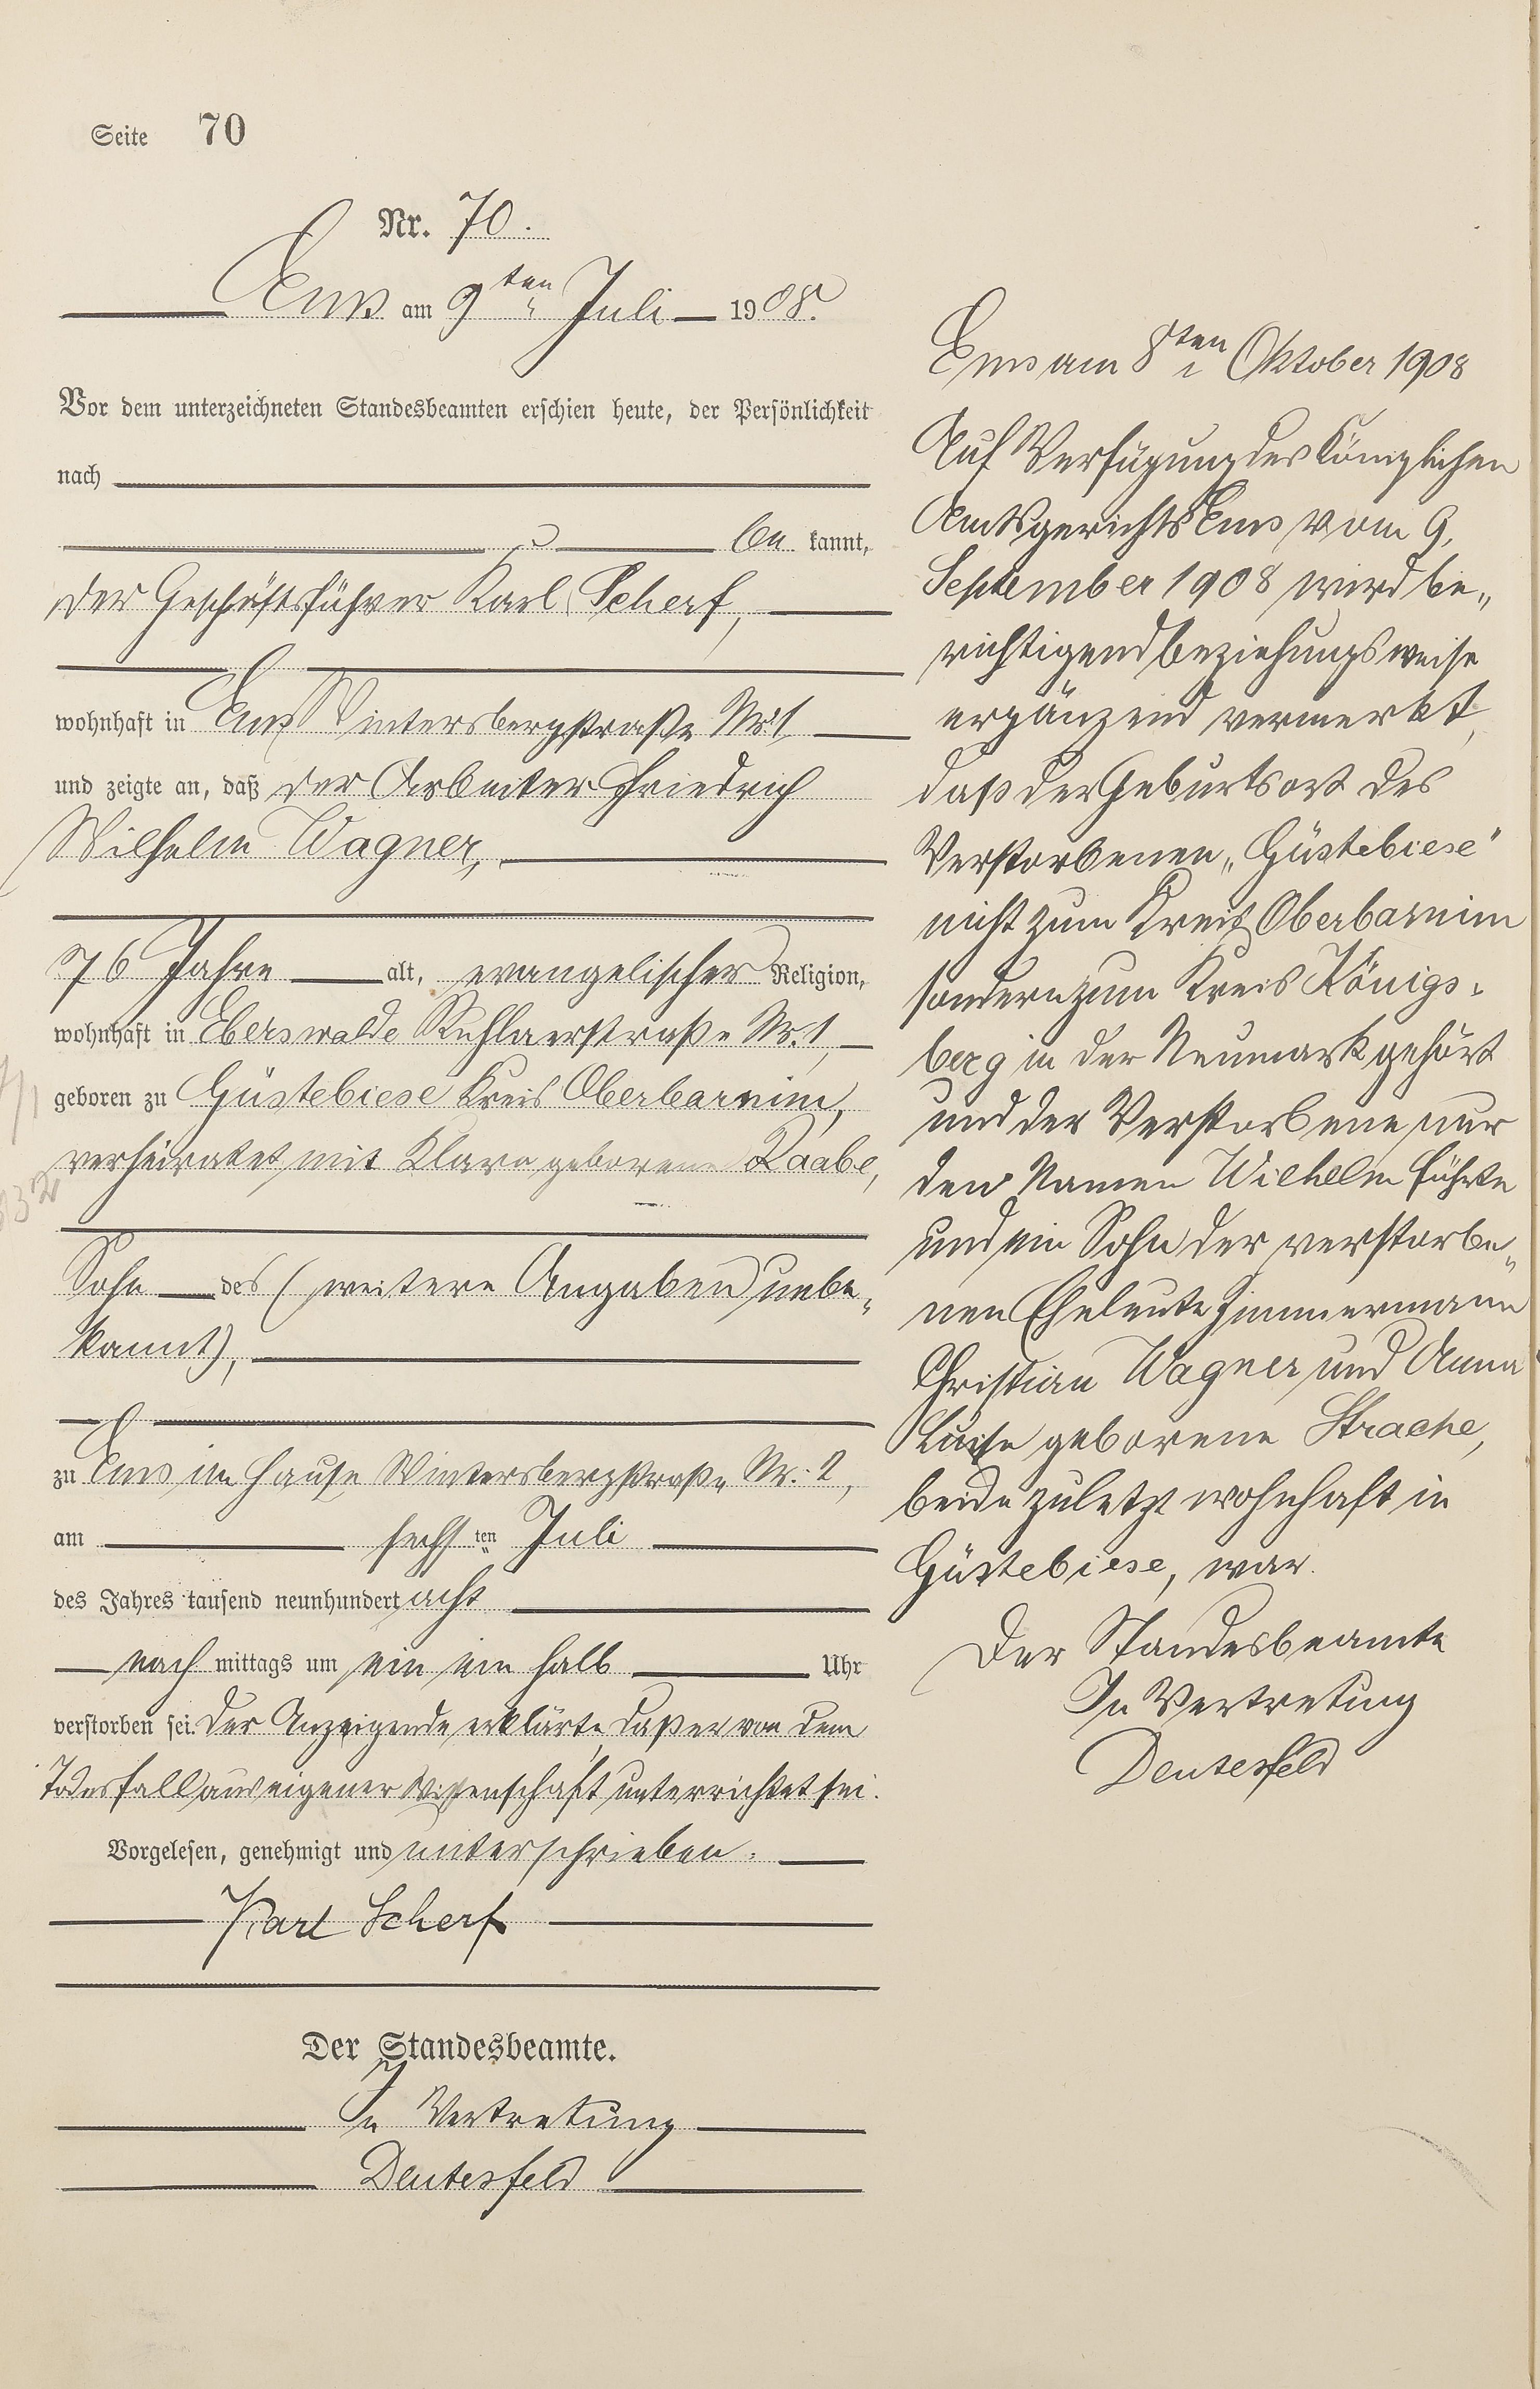 Seite 70
Nr. 70.
Ems am 9ten Juli 1908.
Vor dem unterzeichneten Standesbeamten erschien heute, der Persönlichkeit
nach
be kannt,
der Geschäftsführer Karl Scherf,
wohnhaft in Ems Wintersbergstraße Nr. 1
und zeigte an, daß der Arbeiter Friedrich
Wilhelm Wagner,
76 Jahre alt, evangelischer Religion,
wohnhaft in Eberswalde Ruhlaerstraße Nr. 1,
geboren zu Güstebiese Kreis Oberbarnim,
verheiratet mit Klara geborene Raabe,
Sohn des (weitere Angaben unbe„
kannt),
zu Ems im Hause Wintersbergstraße Nr. 2,
am sechsten Juli
des Jahres tausend neunhundert acht
nach mittags um ein ein halb Uhr
verstorben sei. Der Anzeigende erklärte, daß er von dem
Todesfall aus eigener Wissenschaft unterrichtet sei.
Vorgelesen, genehmigt und unterschrieben.
Karl Scherf
Der Standesbeamte.
In Vertretung
Deutesfeld
Ems am 8ten Oktober 1908
Auf Verfügung des Königlichen
Amtsgerichts Ems vom 9.
September 1908 wird be„
richtigend beziehungsweise
ergänzend vermerkt,
daß der Geburtsort des
Verstorbenen „Güstebiese"
nicht zum Kreis Oberbarnim
sondern zum Kreis Königs-
berg in der Neumark gehört
und der Verstorbene nur
den Namen Wilhelm führte
und ein Sohn der verstorbe„
nen Eheleute Zimmermann
Christian Wagner und Anna
Luise geborene Strache,
beide zuletzt wohnhaft in
Güstebiese, war.
Der Standesbeamte
In Vertretung
Deutesfeld